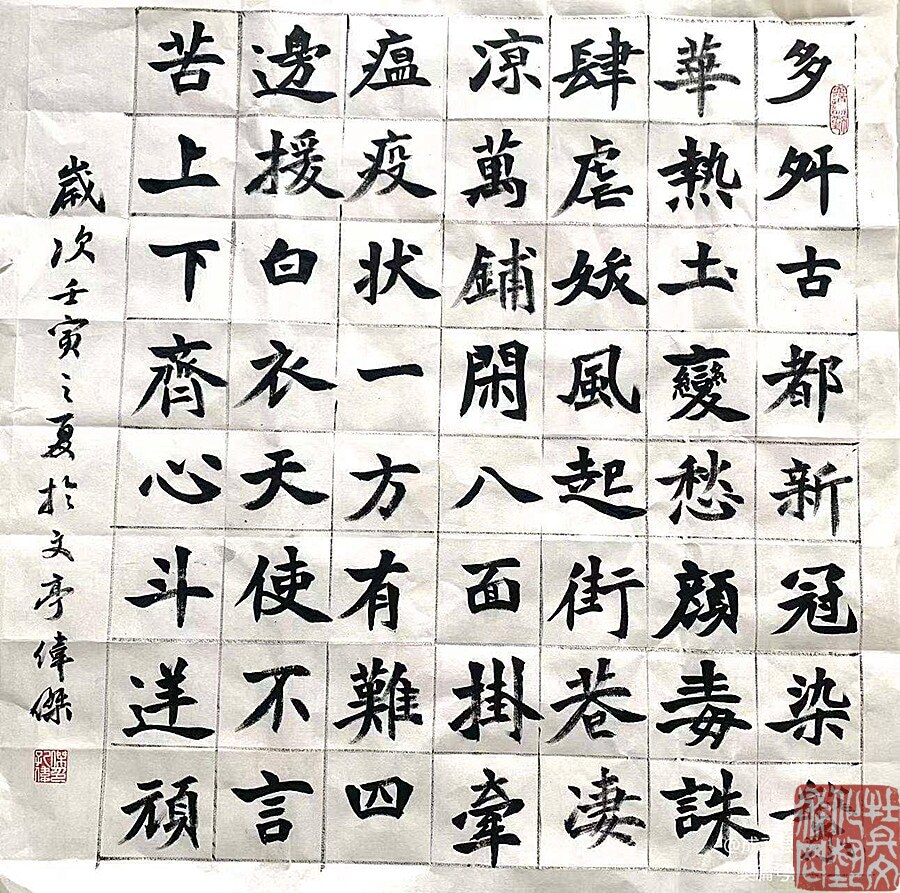 多舛古都新冠染
華熱土變愁顏毒誅
肆虐妖風起街巷凄
凉萬鋪閑八面掛牽
瘟疫状一方有難四
邊援白衣天使不言
苦上下齊心斗逆頑
歲次壬寅之夏於文亭偉傑